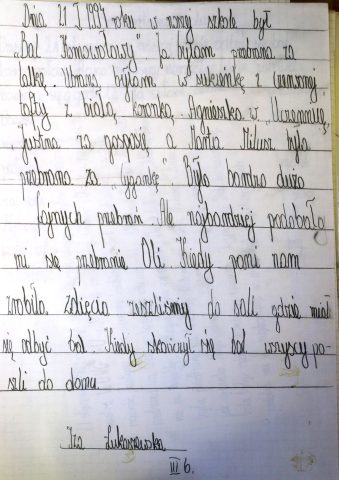 Dnia 21 I 1994 roku w mojej szkole był
„Bal Karnowałowy" Ja byłam przebrana za
lalkę. Ubrana byłam w sukienkę z czerwonej
tafty z białą koronką, Agnieszka w „Uczennicę",
Justina za gosposię a Marta Miłusz była
przebrana za „cygankę". Było bardzo dużo
fajnych przebrań. Ale najbardziej podobało
mi się przebranie Oli. Kiedy pani nam
zrobiła zdięcia zeszliśmy do sali gdzie miał
się odbyć bal. Kiedy skończył się bal wszyscy po-
szli do domu.
Iza Łukaszewska
III b.